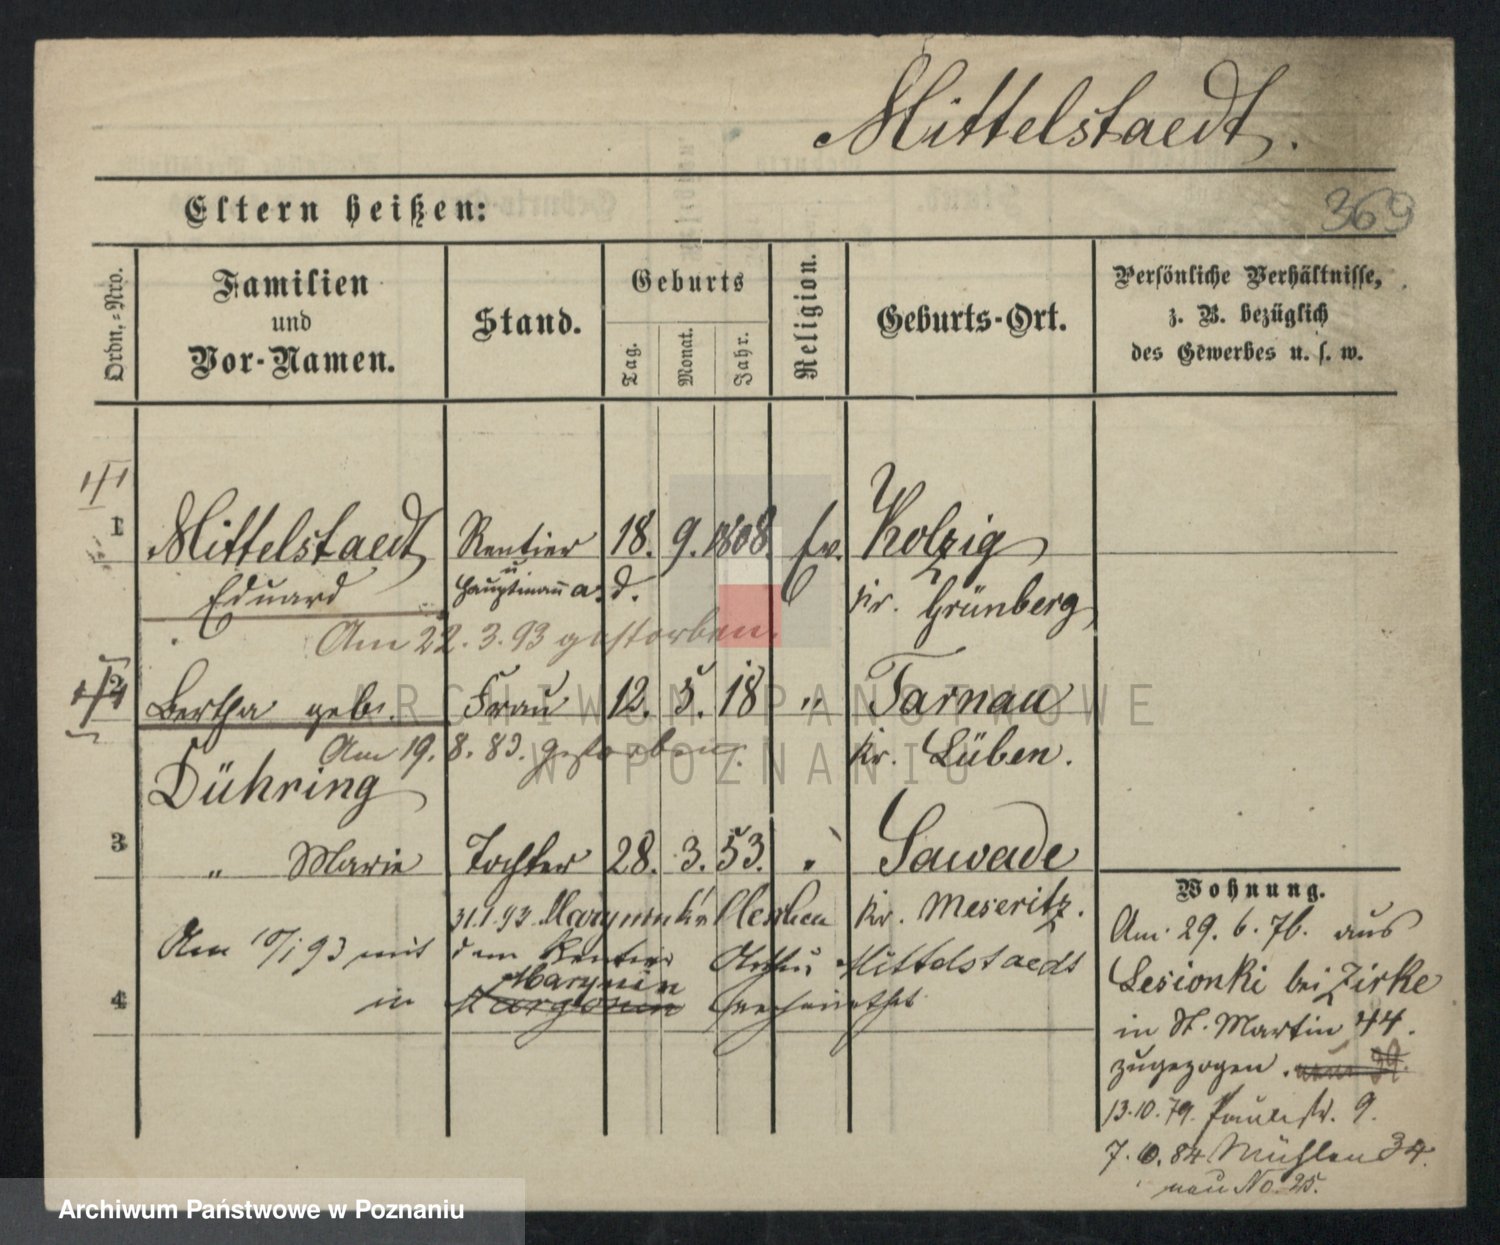 Mittelstaedt.
369
Eltern heißen:
Ordn.-Nro.
Familien
und
Vor-Namen.
Stand.
Geburts
Tag.
Monat.
Jahr.
Religion.
Geburts-Ort.
Persönliche Verhältnisse,
z. B. bezüglich
des Gewerbes u. s. w.
1 Mittelstaedt Rentier 18. 9. 1808. Ev. Kolzig
Eduard u Hauptmañ a. D. Kr. Grünberg
Am 22. 3. 93 gestorben.
2 Bertha geb. Frau 12. 5. 18 " Tarnau
Am 19. 8. 83. gestorben. Kr. Lüben.
Dühring
3 " Marie Tochter 28. 3. 53. " Sawade
31.1.93. Marynin Kr Kr. Meseritz.
Am 10/1 93 mit dem Rentier Mittelstaedt
Marynin
4 in
Wohnung.
Am 29. 6. 76. aus
Lesionki bei Zirke
in St. Martin 44.
zugezogen.
13.10.79. Paulistr. 9.
7. 10. 84 Mühlen 34.
neu No. 25.
ARCHIWUM PAŃSTWOWE
W POZNANIU
Archiwum Państwowe w Poznaniu